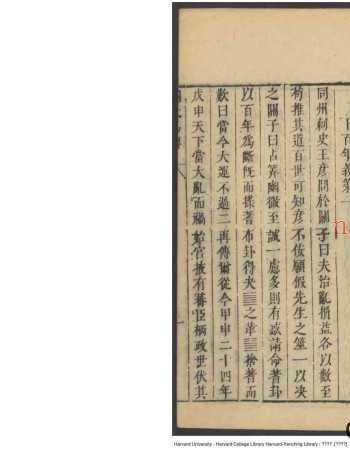 百年義第一
同州刺史王彥問於關子曰夫治亂損益各以數至
苟推其道百世可知彥不佞願假先生之筮一以決
之關子曰占筭幽微至誠一慮多則有惑請命蓍卦
以百年為斷既而揲蓍布卦得夬䷪之革䷰捨蓍而
歎曰當今大運不過二再傳爾從今甲申二十四年
戊申天下當大亂而禍始宮掖有蕃臣柄政世伏其
n
Harvard University - Harvard College Library Harvard-Yenching Library / ???? [????],